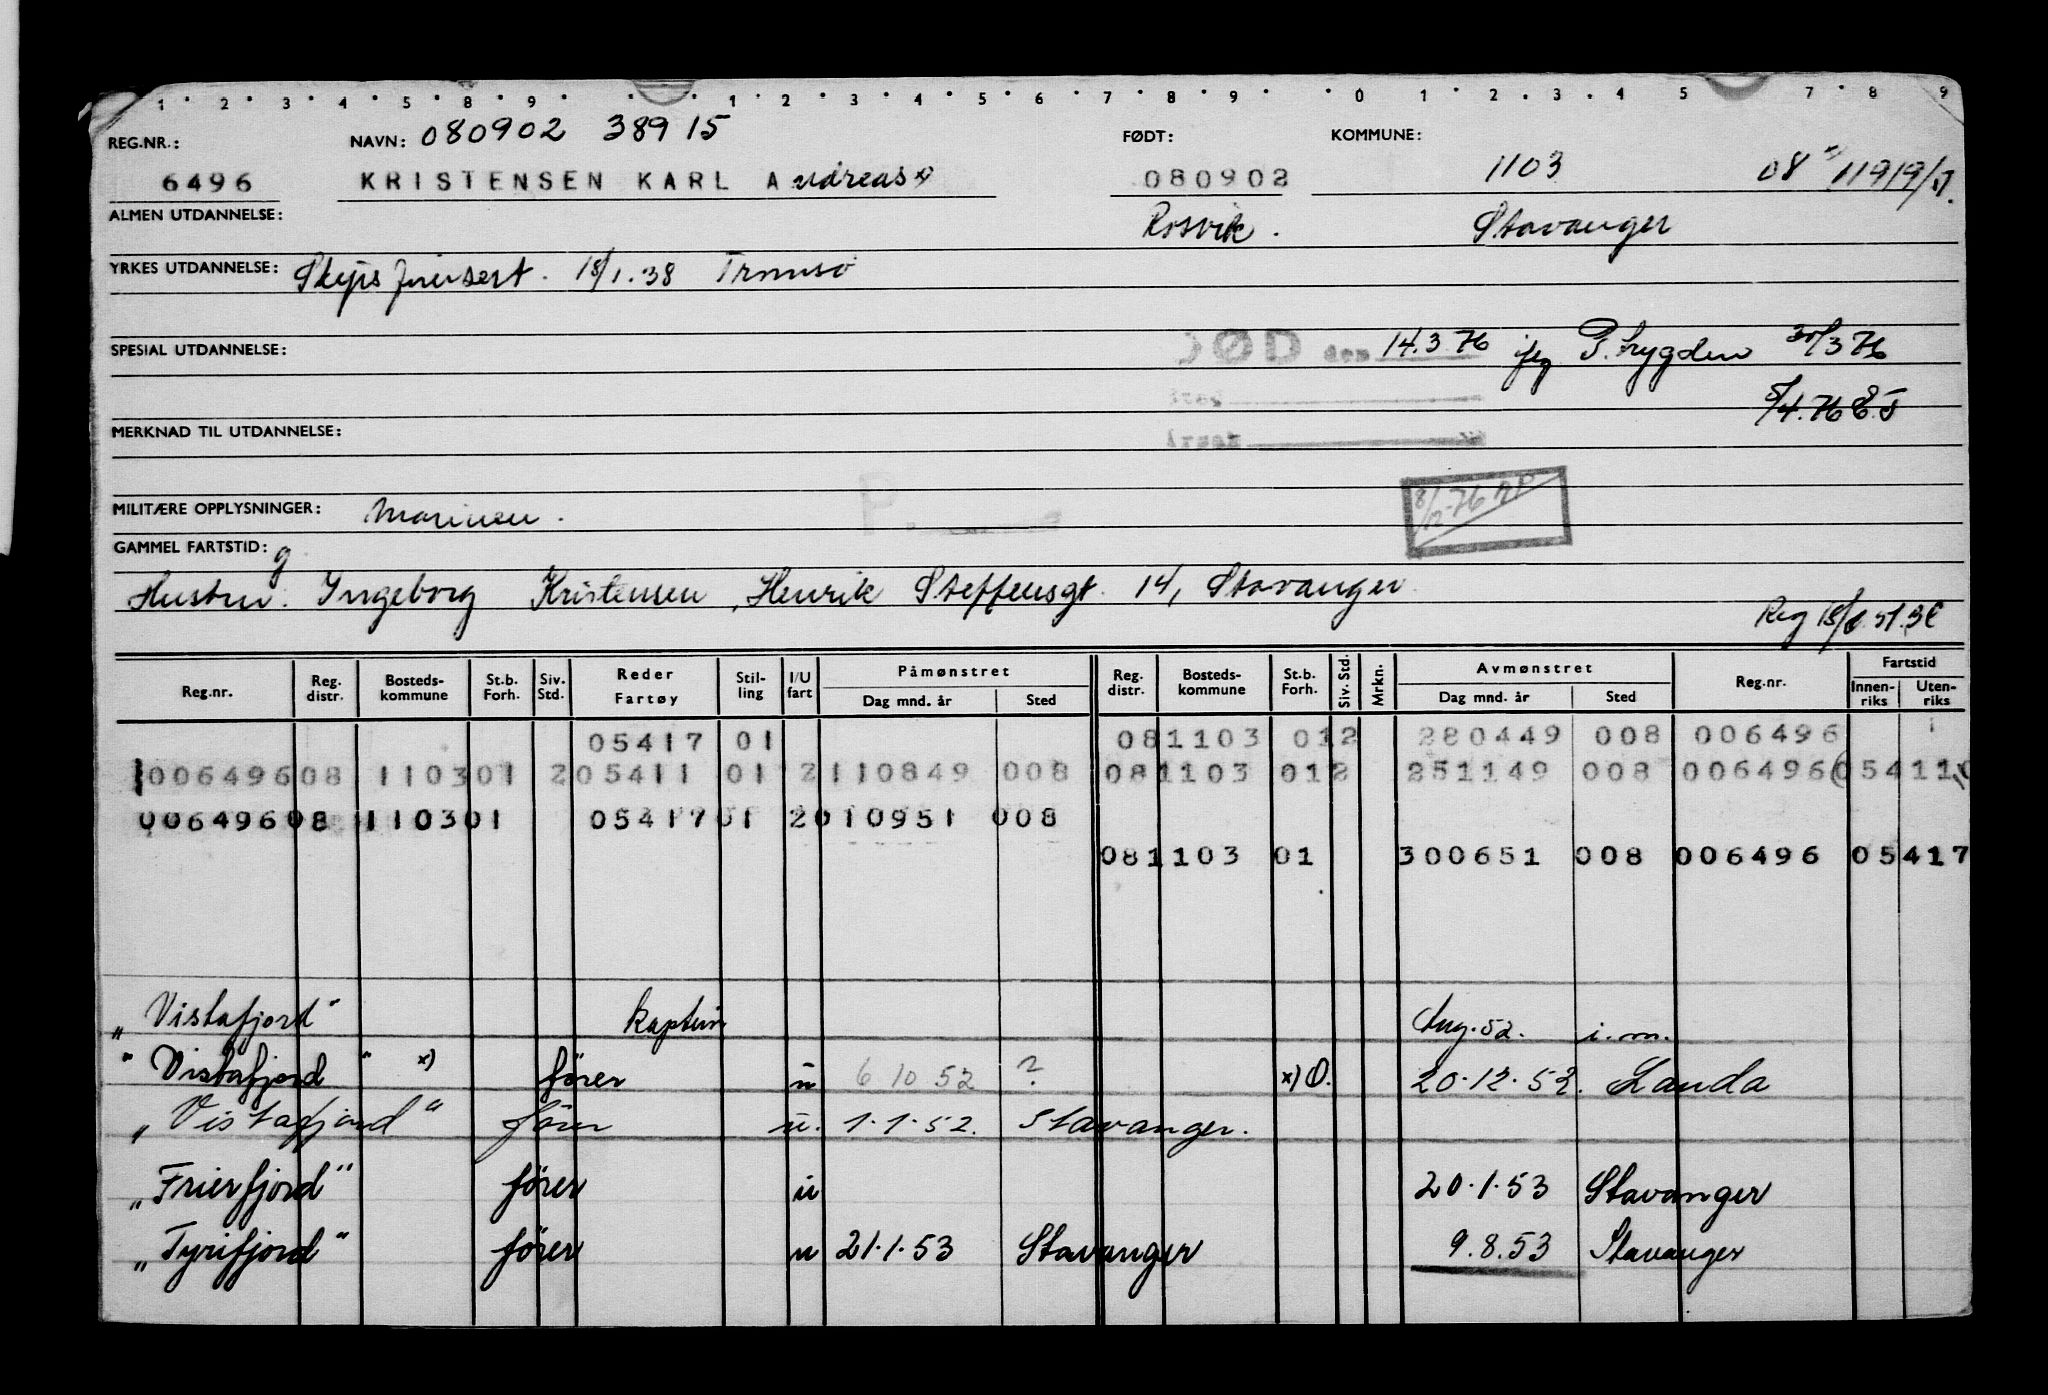 1 2 3 4 5 8 9 1 2 3 4 5 6 7 8 9 0 1 2 3 4 5 7 8 9
REG.NR.: NAVN: 080902 38915 FØDT: KOMMUNE:
6496 KRISTENSEN KARL Andreas 080902 1103 08
ALMEN UTDANNELSE: Rosvik. Stavanger
YRKES UTDANNELSE: 18/1.38 Tromsø
SPESIAL UTDANNELSE: DØD den 14.3.76 30/3 76
Sted 5/4.76
MERKNAD TIL UTDANNELSE: Årsak
MILITÆRE OPPLYSNINGER: Marinen. P. 8/12-76
GAMMEL FARTSTID: g
Hustru: Ingeborg Kristensen, Henrik Steffensgt. 14, Stavanger.
Reg
Reg.nr. Reg. distr. Bosteds-kommune St.b. Forh. Siv. Std. Reder Fartøy Stil-ling I/U fart Påmønstret Dag mnd. år Sted Reg. distr. Bosteds-kommune St.b. Forh. Siv. Std. Mrkn. Avmønstret Dag mnd. år Sted Reg.nr. Fartstid Innen-riks Uten-riks
05417 01 081103 012 280449 008 006496
006496 08 1103 01 2 05411 01 2 110849 008 081103 012 251149 008 006496 05411
006496 08 1103 01 05417 01 2 010951 008
081103 01 300651 008 006496 05417
"Vistafjord" kaptein Aug. 52. i.m.
"Vistafjord" x) fører u 6 10 52 ? x) O. 20.12.52. Landa
"Vistafjord" fører u. 1.1.52. Stavanger.
"Frierfjord" fører u 20.1.53 Stavanger
"Tyrifjord" fører u 21.1.53 Stavanger 9.8.53 Stavanger